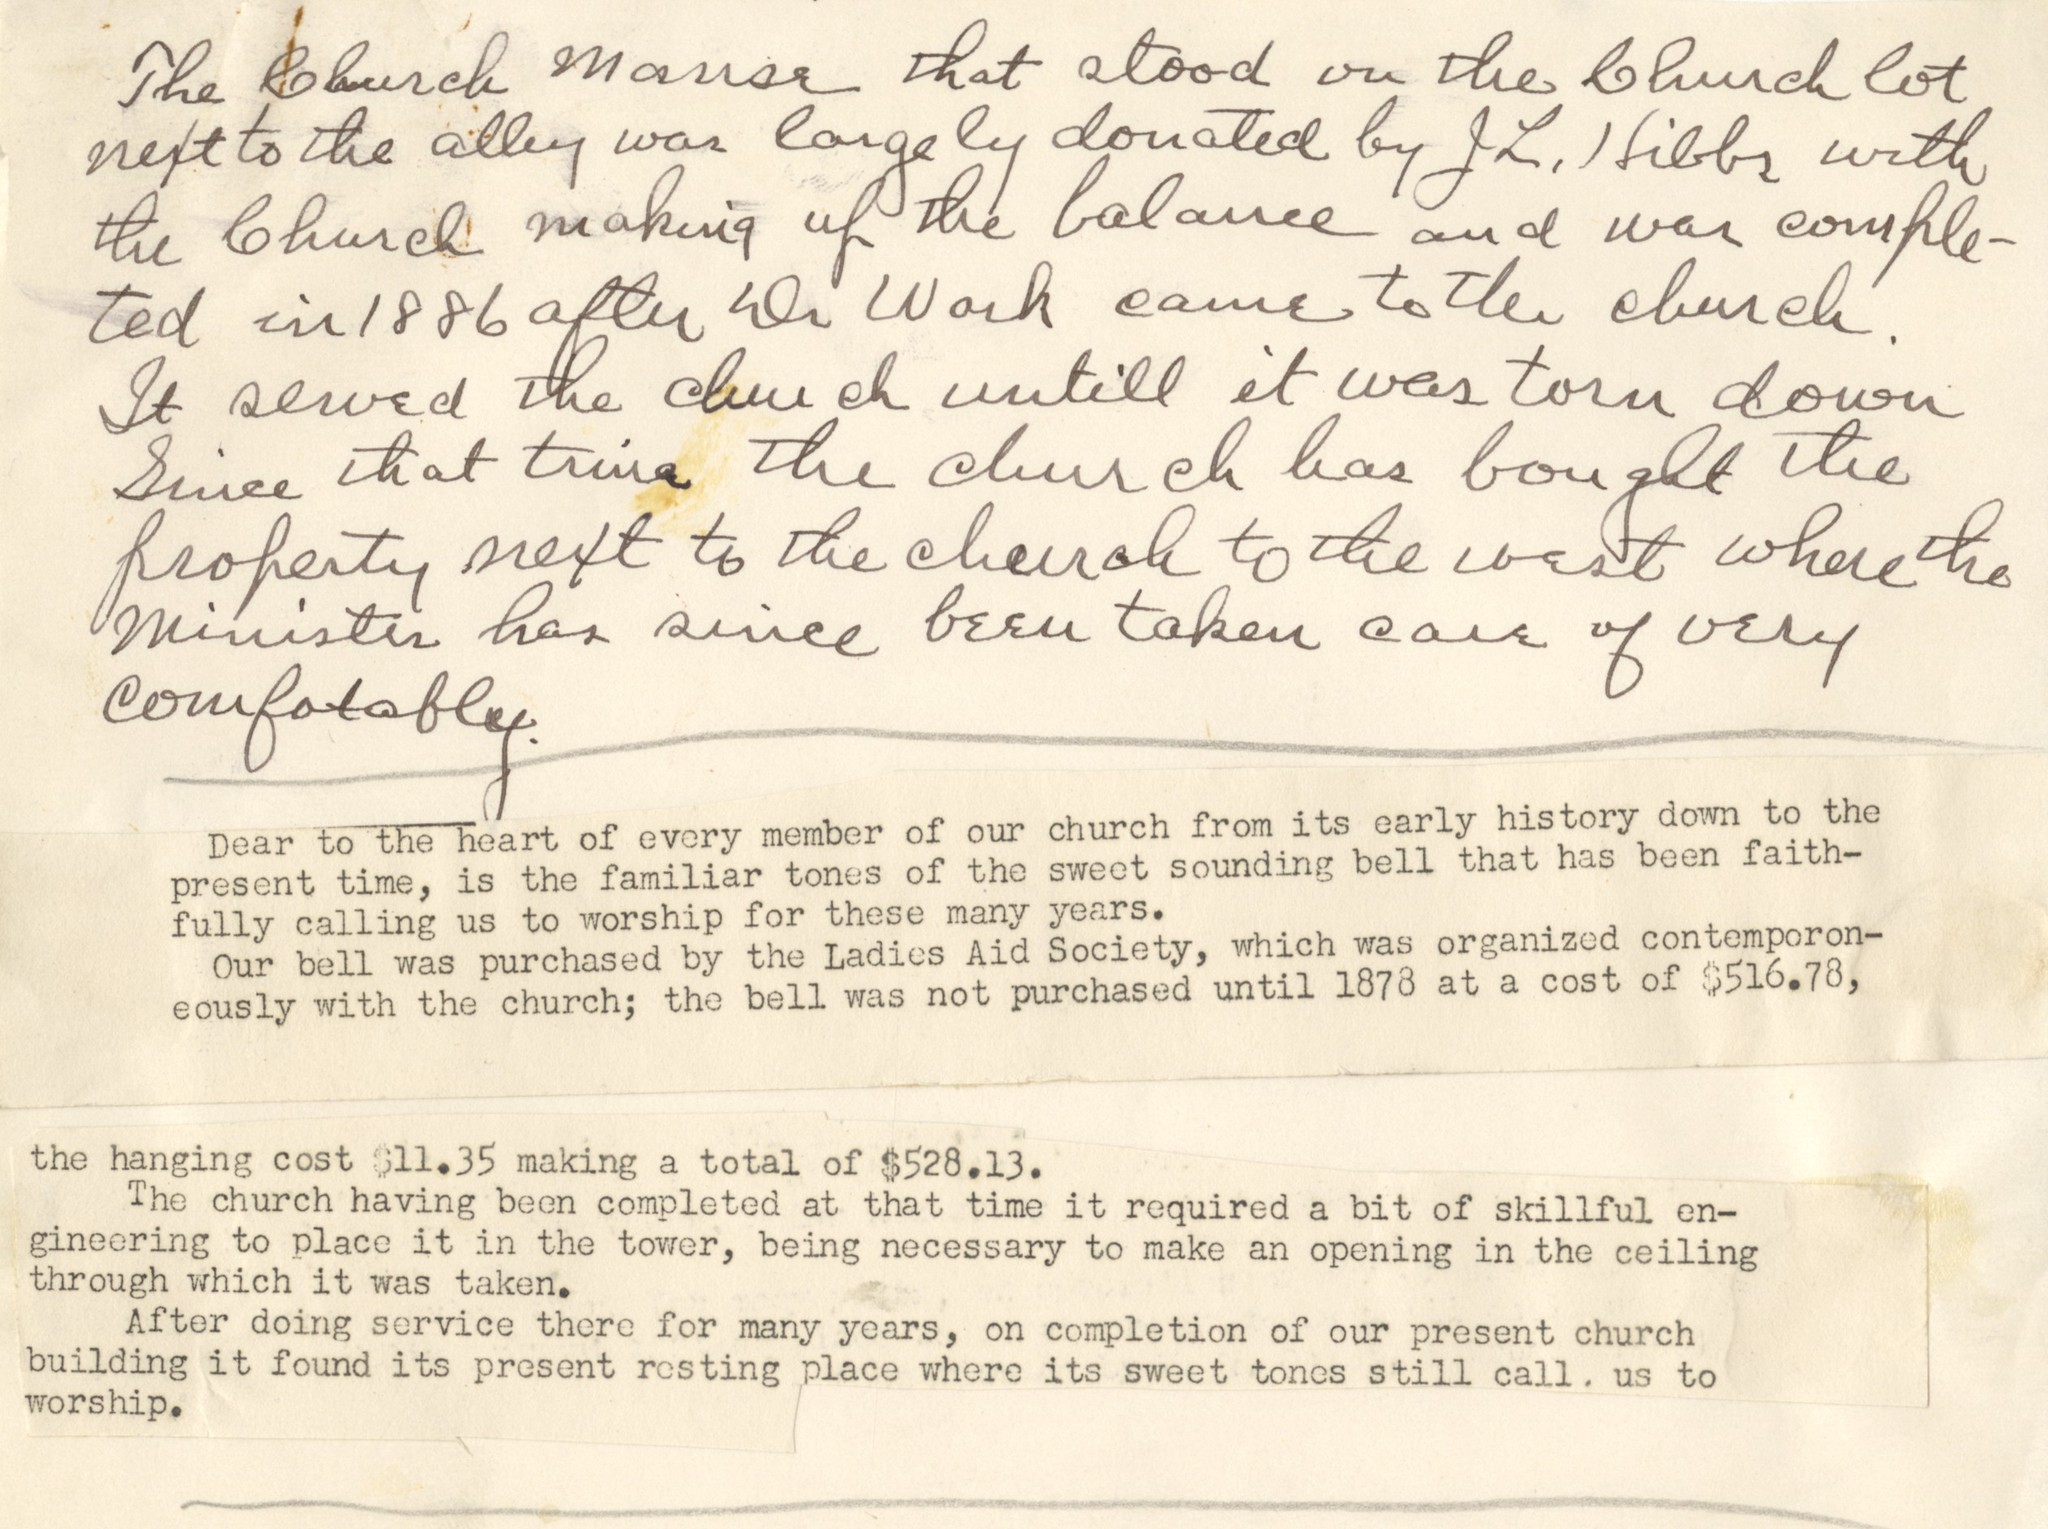 The Church Manse that stood on the Church lot
next to the alley was largely donated by J.L. Hibbs with
the Church making up the balance and was comple-
ted in 1886 after Dr Work came to the church.
It served the church untill it was torn down
Since that time the church has bought the
property next to the church to the west where the
Minister has since been taken care of very
comfotably.
Dear to the heart of every member of our church from its early history down to the
present time, is the familiar tones of the sweet sounding bell that has been faith-
fully calling us to worship for these many years.
Our bell was purchased by the Ladies Aid Society, which was organized contemporon-
eously with the church; the bell was not purchased until 1878 at a cost of $516.78,
the hanging cost $11.35 making a total of $528.13.
The church having been completed at that time it required a bit of skillful en-
gineering to place it in the tower, being necessary to make an opening in the ceiling
through which it was taken.
After doing service there for many years, on completion of our present church
building it found its present resting place where its sweet tones still call. us to
worship.